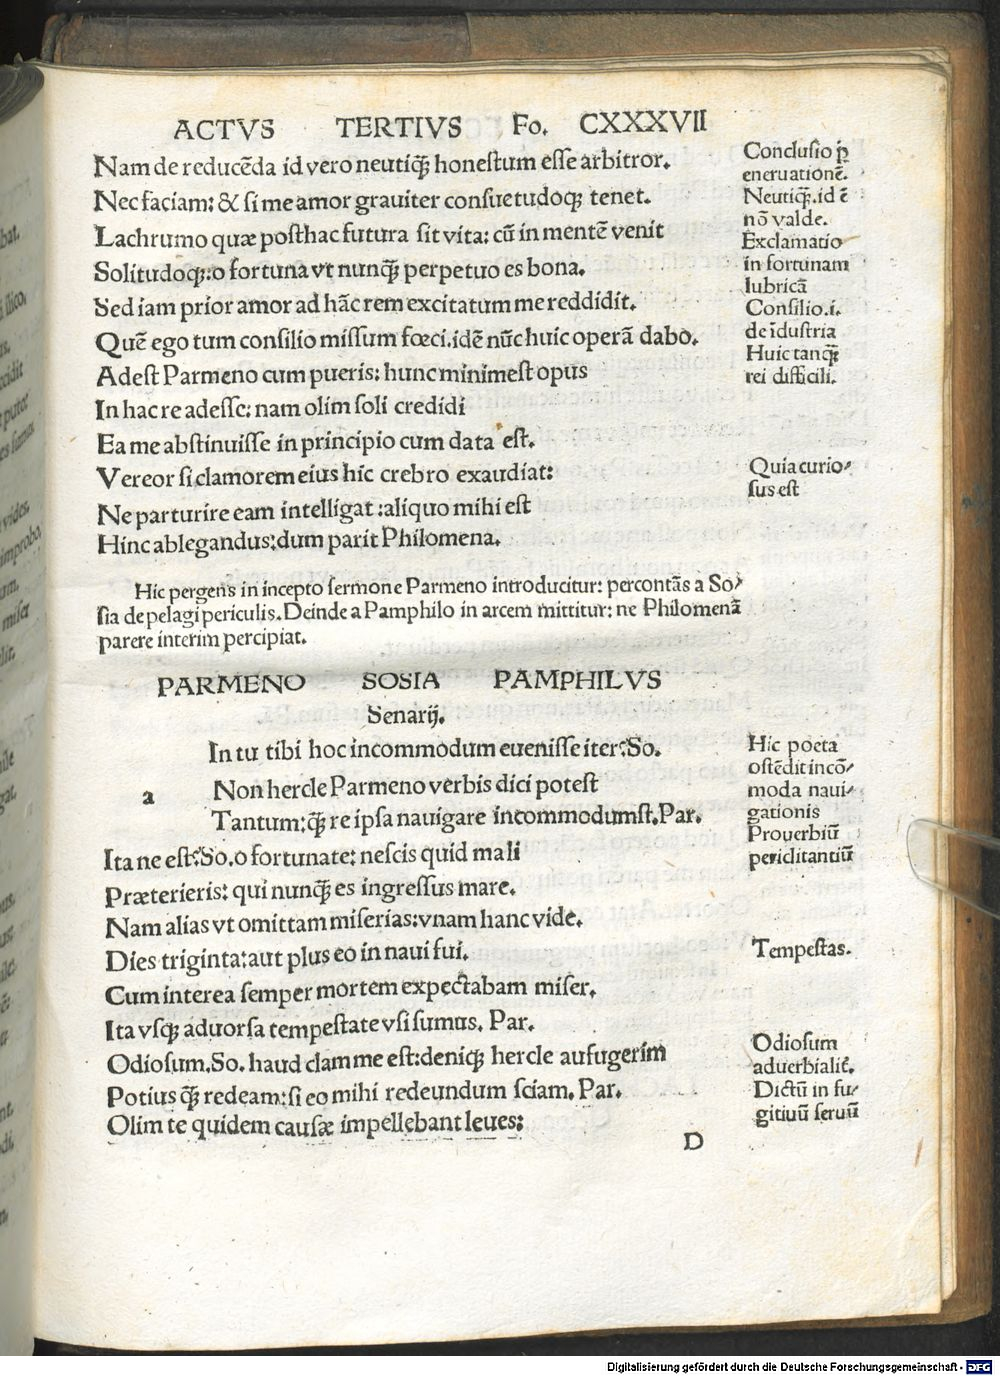 ACTVS TERTIVS Fo. CXXXVII
Nam de reducēda id vero neutiq̃ honestum esse arbitror.
Nec faciam: & si me amor grauiter consuetudoq; tenet.
Lachrumo quæ posthac futura sit vita: cū in mentē venit
Solitudoq;:o fortuna vt nunq̃ perpetuo es bona.
Sed iam prior amor ad hāc rem excitatum me reddidit.
Quē ego tum consilio missum fœci.idē nūc huic operā dabo.
Adest Parmeno cum pueris: hunc minimest opus
In hac re adesse: nam olim soli credidi
Ea me abstinuisse in principio cum data est.
Vereor si clamorem eius hic crebro exaudiat:
Ne parturire eam intelligat :aliquo mihi est
Hinc ablegandus:dum parit Philomena.
Conclusio p̄
eneruationē.
Neutiq̃.id ē
nō valde.
Exclamatio
in fortunam
lubricā
Consilio.i.
de īdustria
Huic tanq̃
rei difficili.
Quia curio-
sus est
Hic pergens in incepto sermone Parmeno introducitur: percontās a So-
sia de pelagi periculis. Deinde a Pamphilo in arcem mittitur: ne Philomenā
parere interim percipiat.
PARMENO SOSIA PAMPHILVS
Senarij.
a
In tu tibi hoc incommodum euenisse iter?So.
Non hercle Parmeno verbis dici potest
Tantum:q̃ re ipsa nauigare incommodumst.Par.
Ita ne est?So.o fortunate: nescis quid mali
Præterieris: qui nunq̃ es ingressus mare.
Nam alias vt omittam miserias:vnam hanc vide.
Dies triginta:aut plus eo in naui fui.
Cum interea semper mortem expectabam miser.
Ita vsq; aduorsa tempestate vsi sumus. Par.
Odiosum.So. haud clam me est:deniq; hercle aufugerim
Potius q̃ redeam:si eo mihi redeundum sciam. Par.
Olim te quidem causæ impellebant leues:
Hic poeta
ostēdit incō-
moda naui-
gationis
Prouerbiū
periclitantiū
Tempestas.
Odiosum
aduerbialit̄.
Dictū in fu-
gitiuū seruū
D
Digitalisierung gefördert durch die Deutsche Forschungsgemeinschaft - DFG